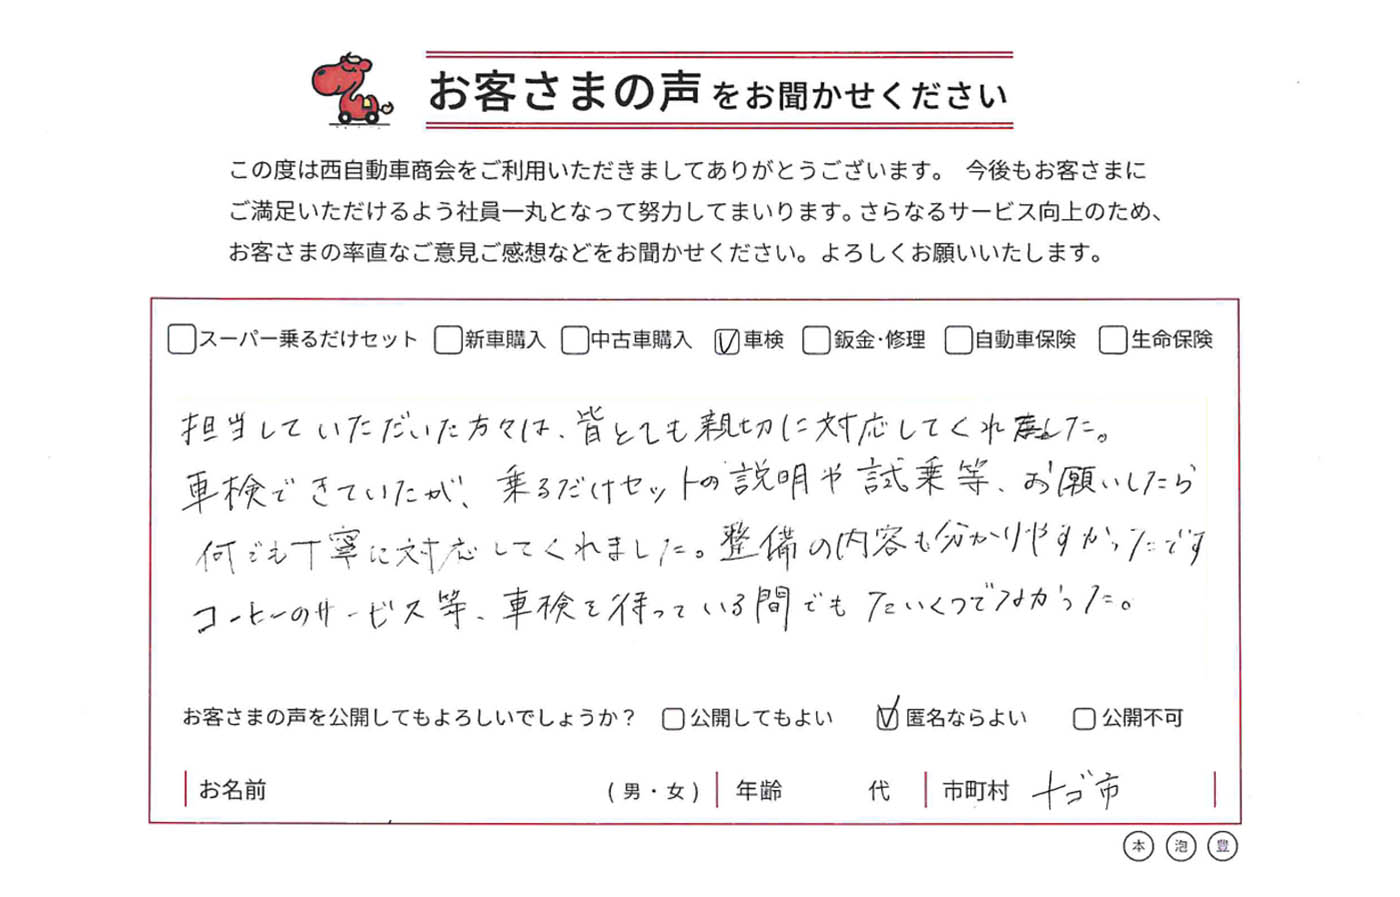 お客さまの声をお聞かせください
この度は西自動車商会をご利用いただきましてありがとうございます。 今後もお客さまに
ご満足いただけるよう社員一丸となって努力してまいります。さらなるサービス向上のため、
お客さまの率直なご意見ご感想などをお聞かせください。よろしくお願いいたします。
スーパー乗るだけセット 新車購入 中古車購入 車検 鈑金・修理 自動車保険 生命保険
担当していただいた方々は、皆とても親切に対応してくれました。
車検できていたが、乗るだけセットの説明や試乗等、お願いしたら
何でも丁寧に対応してくれました。整備の内容も分かりやすかったです
コーヒーのサービス等、車検を待っている間でもたいくつでなかった。
お客さまの声を公開してもよろしいでしょうか？ 公開してもよい 匿名ならよい 公開不可
お名前 (男・女) 年齢 代 市町村 ナゴ市
本 泡 豊